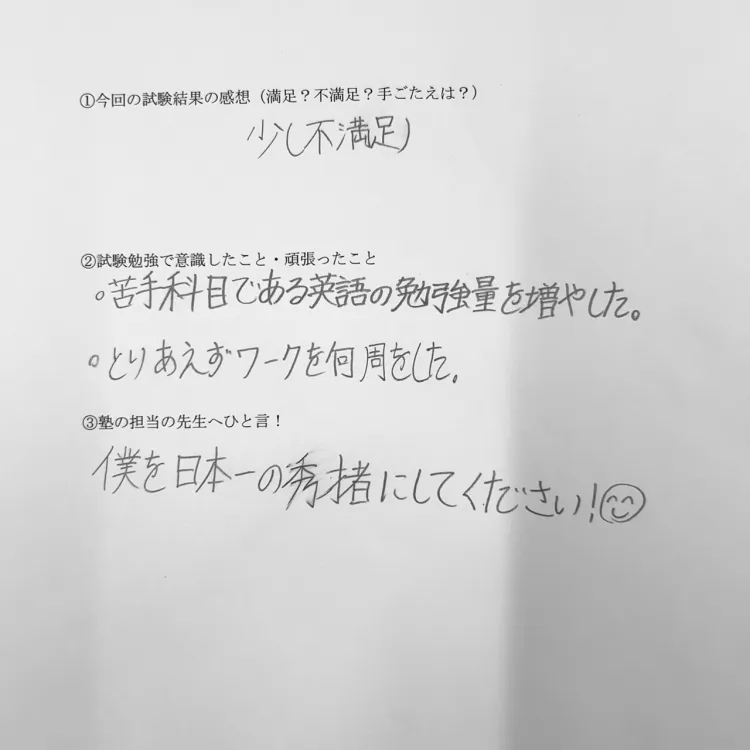 ①今回の試験結果の感想（満足？不満足？手ごたえは？）
少し不満足
②試験勉強で意識したこと・頑張ったこと
。苦手科目である英語の勉強量を増やした。
。とりあえずワークを何周をした。
③塾の担当の先生へひと言！
僕を日本一の秀才者にしてください！